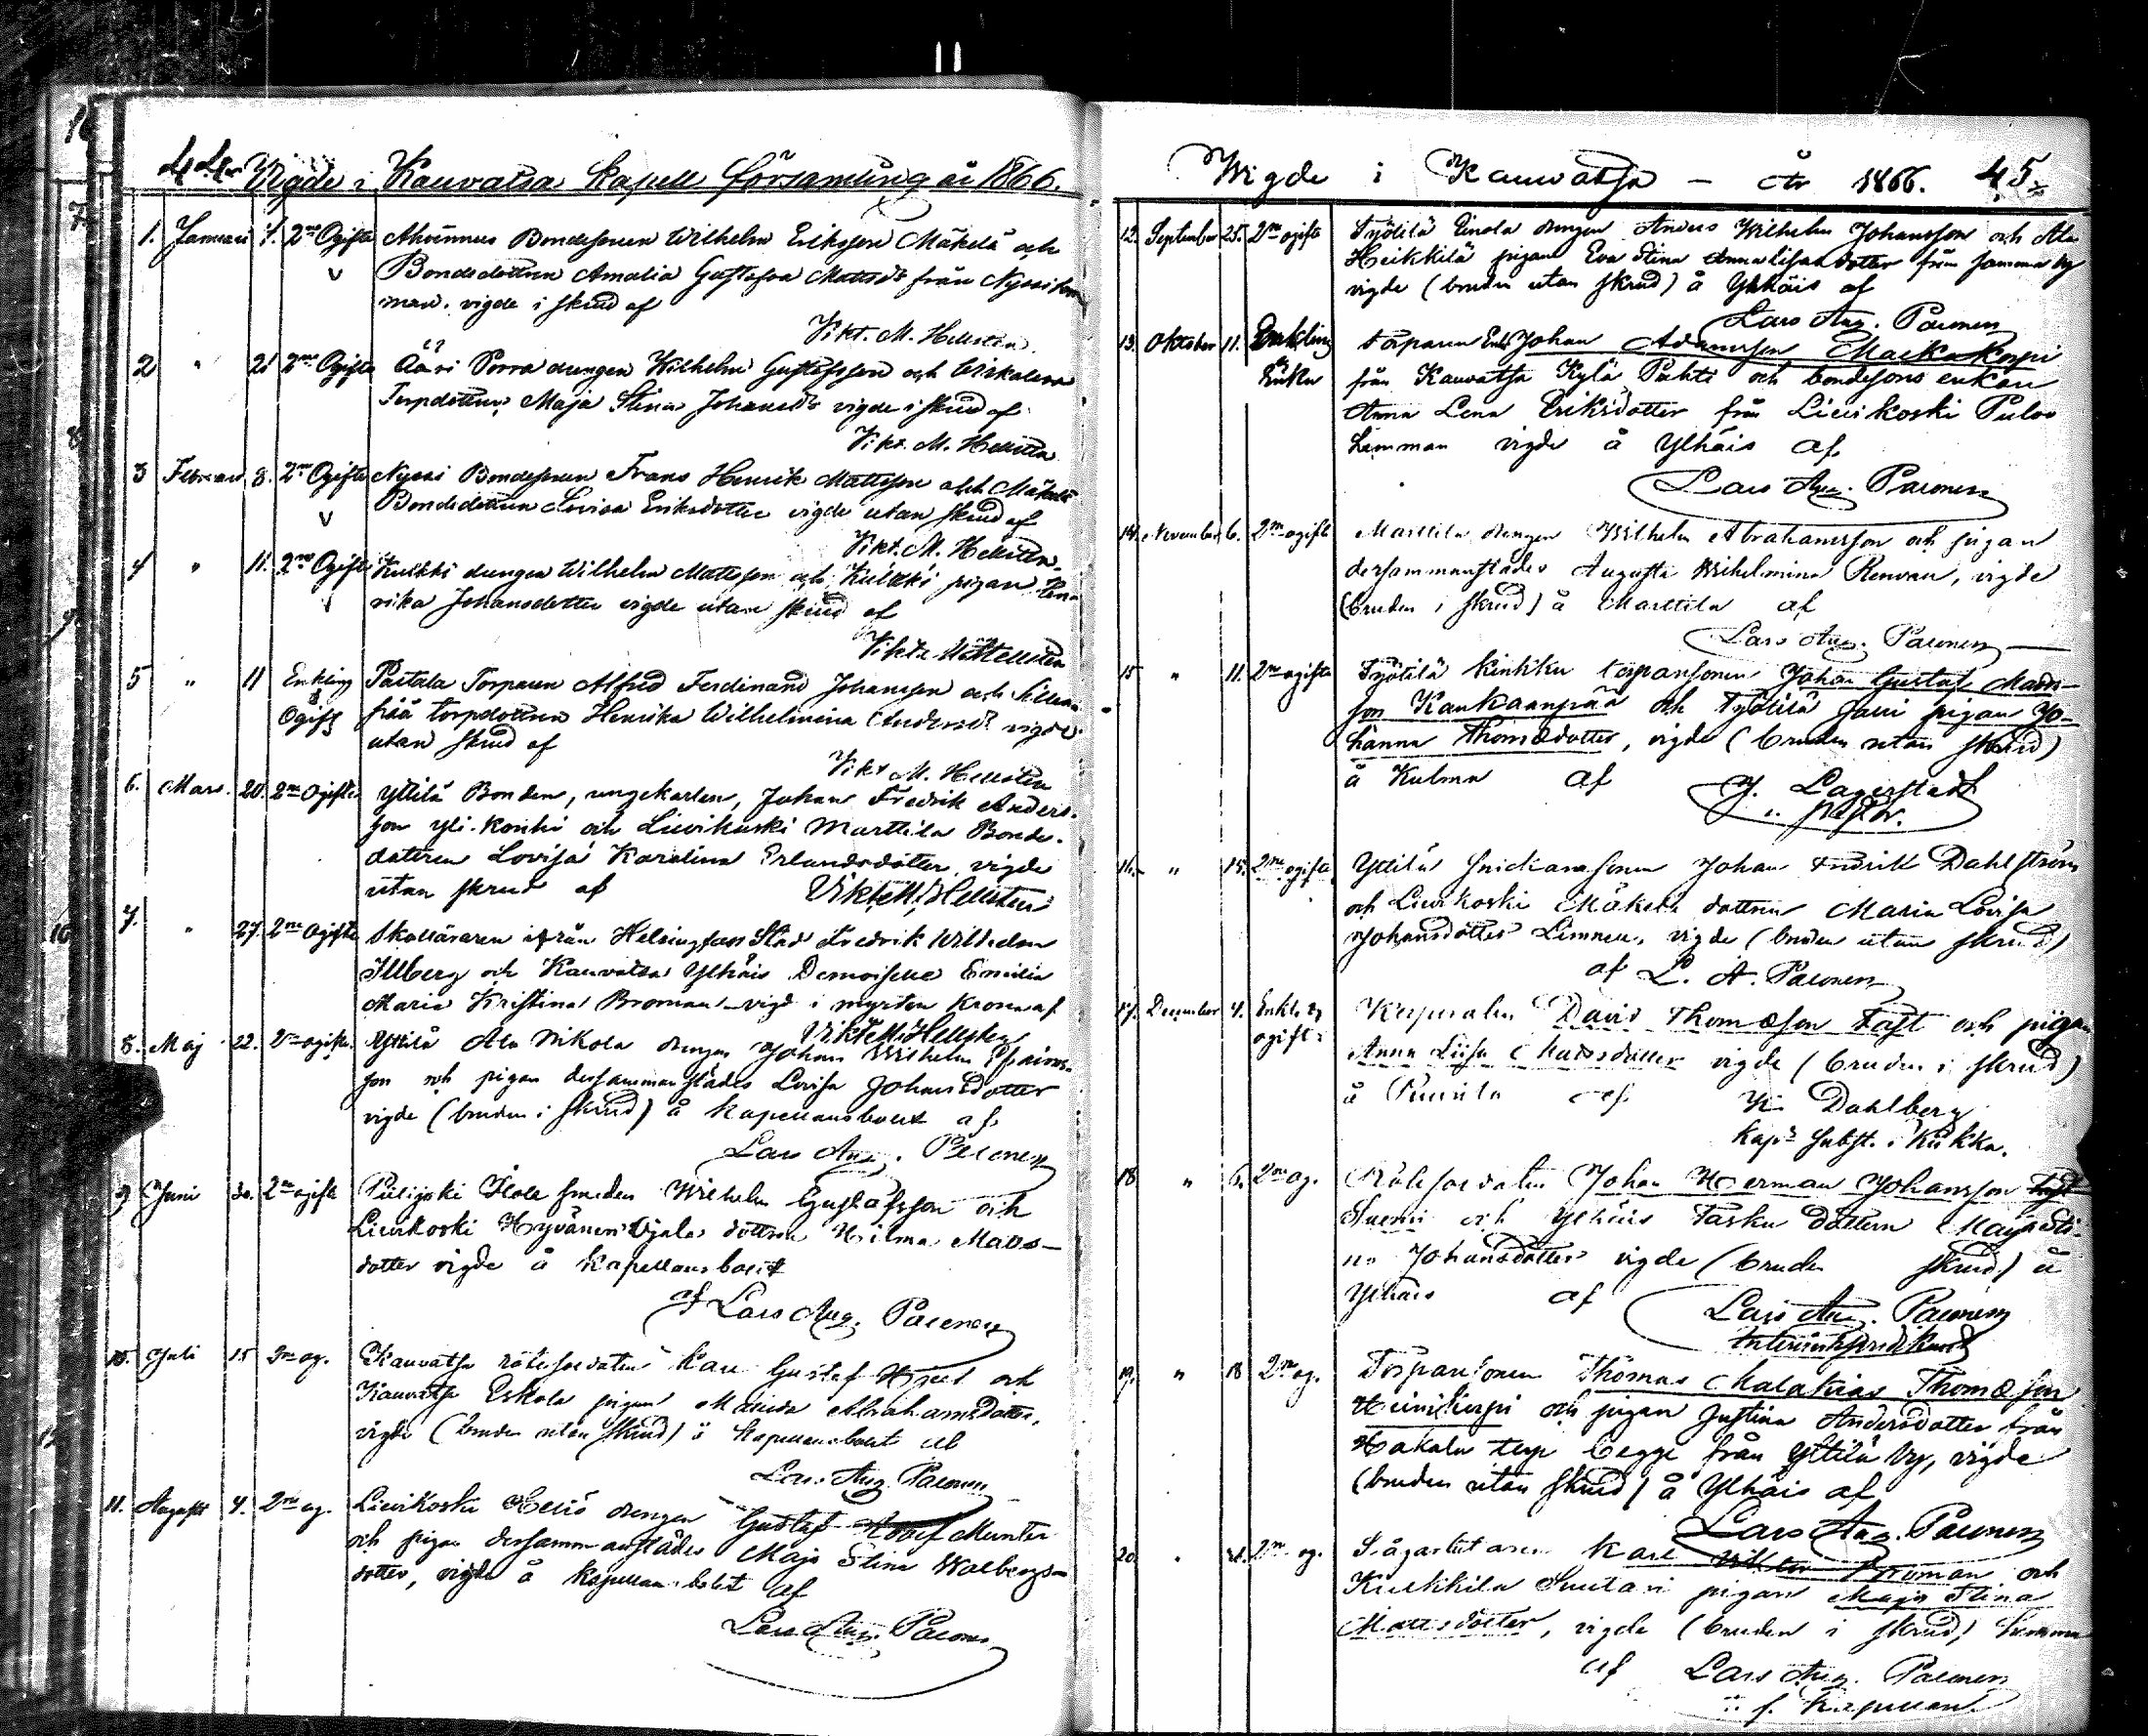 44. Vigde i Kauvatsa Kapell församling år 1866.
1. Januari 1. 2ne Ogifte Ahvinnus Bondesonen Wilhelm Eriksson Mäkelä och
Bondedottren Amalia Gustafva Mattsdr från Nyssi
vigde i skrud af
Vikt. M. Hellsten.
2 " 21 2ne Ogifte Porra drengen Wilhelm Gustafsson och
Torpdottren Maja Stina Johansdr vigde i skrud af
Vikt. M. Hellsten
3 Februari 8. 2ne Ogifte Nyssi Bondesonen Frans Henrik Mattsson och Mäkelä
Bondedottren Lovisa Eriksdotter vigde utan skrud af
Vikt. M. Hellsten.
4 " 11. 2ne Ogifte Kulkki drengen Wilhelm Mattsson och Kulkki pigan Hen
rika Johansdotter vigde utan skrud af
Vikt. M. Hellsten
5 " 11 Enkling & Paitala Torparen Alfred Ferdinand Johansson och
Ogift torpdottren Henrika Wilhelmina Andersdr vigde
utan skrud af
Vikt M. Hellsten
6. Mars. 20. 2ne Ogifte Yttilä Bonden, ungekarlen, Johan Fredrik Anders-
son Yli-Konhi och Lievikoski Marttila Bonde-
dottren Lovisa Karolina Erlandsdotter, vigde
utan skrud af Vikt. M. Hellsten
7. " 27. 2ne Ogifte Skolläraren ifrån Helsingfors Stad Fredrik Wilhelm
Illberg och Kauvatsa Ylhäis Demoiselle Emilia
Maria Kristina Broman vigd i myrten krona af
Vikt. M. Hellsten
8. Maj 22. 2ne ogifte. Yttilä Ala Nikola drengen Johan Wilhelm
son och pigan dersammanstädes Lovisa Johansdotter
vigde (bruden i skrud) å kapellansbolet af
Lars Aug. Paeonen
9 Juni 30. 2ne ogifte Piilijoki Isola smeden Wilhelm Gustafsson och
Lievikoski Hyvänen Ojala dottren Hilma Matts-
dotter vigde å kapellansbolet
af Lars Aug. Paeonen
10. Juli 15 2ne og. Kauvatsa rotesoldaten Karl Gustaf Hjelt och
Kauvatsa Eskola pigan Matilda Abrahamsdotter,
vigde (bruden utan skrud) å kapellansbolet af
Lars Aug. Paeonen
11. Augusti 4. 2ne og. Lievikoski Heliö drengen Gustaf Adolf Munter
och pigan dersammanstädes Maja Stina Walbergs-
dotter, vigde å kapellansbolet af
Lars Aug. Paeonen
Wigde i Kauvatsa – År 1866. 45.
12. September 25. 2ne ogifte Työtilä Einola drengen Anders Wilhelm Johansson och Ala
Heikkilä pigan Eva Stina Annalisasdotter från samma by
vigde (bruden utan skrud) å Ylhäis af
Lars Aug. Paeonen
13. Oktober 11. Enkling torparen Johan Adamsson Mackakorpi
Enka från Kauvatsa Kylä Puhti och bondesons enkan
Anna Lena Eriksdotter från Lievikoski Pulvo
Limman vigde å Ylhäis af
Lars Aug. Paeonen
14. November 6. 2ne ogifte Marttila drengen Wilhelm Abrahamsson och pigan
dersammanstädes Augusta Wilhelmina Renvan, vigde
(bruden i skrud) å Marttila af
Lars Aug. Paeonen
15 " 11. 2ne ogifte Työtilä Kinkku torparesonen Johan Gustaf Mats-
son Kankaanpää och Työtilä Jaui pigan Jo-
hanna Thomædotter, vigde (bruden utan skrud)
å Kulma af J. Lagerstedt
v. pastor.
16. " 15. 2ne ogifte Yttilä snickaresonen Johan Fredrik Dahlström
och Lievikoski Mäkelä dottren Maria Lovisa
Johansdotter Limnen, vigde (bruden utan skrud)
af L. A. Paeonen
17. December 4. Enkl. & Korpralen David Thomæson Fast och pigan
ogift: Anna Liisa Mattsdotter vigde (bruden i skrud)
å Puntila af Dahlberg
kaps subst. i Kiikka.
18 " 6. 2ne og. Rotesoldaten Johan Herman Johansson
Suomi och Ylhäis Tasku dottern Maja Sti-
na Johansdotter vigde (bruden skrud) å
Ylhäis af Lars Aug. Paeonen
Interimspredikant
19. " 18 2ne og. Torparesonen Thomas Malakias Thomæson
Heinikorpi och pigan Justina Andersdotter från
Hakala torp begge från Yttilä by, vigde
(bruden utan skrud) å Ylhäis af
Lars Aug. Paeonen
20. " 2ne og. Sågarbetaren Karl Viktor Broman och
Kulkkila Suutari pigan Maja Stina
Mattsdotter, vigde (bruden i skrud)
af Lars Aug. Paeonen
v. f. Kapellan.